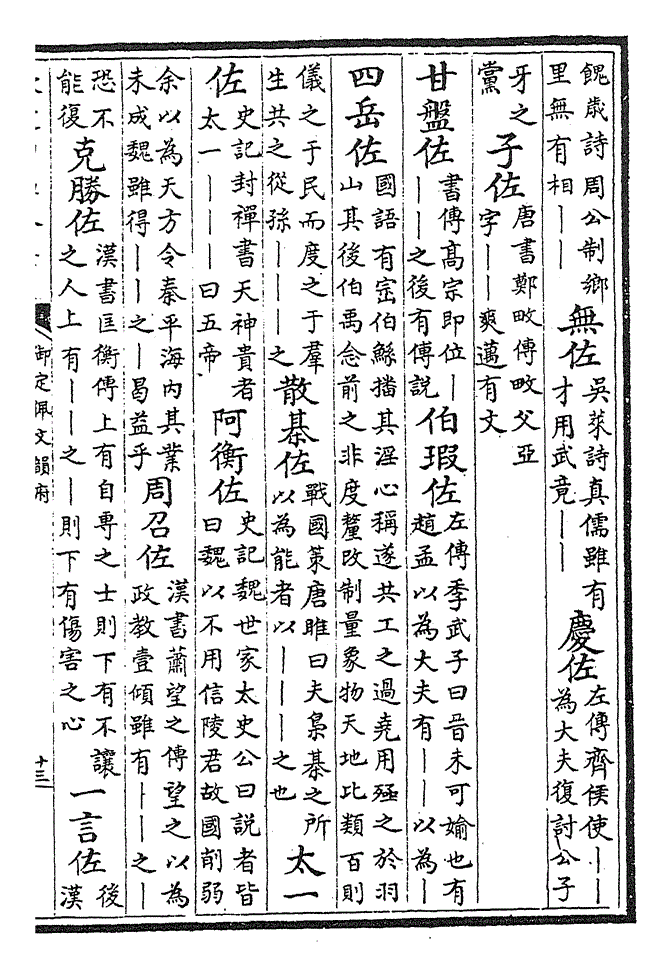 餽歲詩周公制鄉
里無有相｜｜
無佐
吳萊詩真儒雖有
才用武竟｜｜
慶佐
左傳齊侯使｜｜
為大夫復討公子
牙之
黨
子佐
唐書鄭畋傳畋父亞
字｜｜爽邁有文
甘盤佐
書傳髙宗即位｜
｜｜之後有傅說
伯瑕佐
左傳季武子曰晉未可媮也有
趙孟以為大夫有｜｜以為｜
四岳佐
國語有崇伯鯀播其淫心稱遂共工之過堯用殛之於羽
山其後伯禹念前之非度釐改制量象物天地比類百則
儀之于民而度之于羣
生共之從孫｜｜｜之
散棊佐
戰國策唐雎曰夫梟棊之所
以為能者以｜｜｜之也
太一
佐
史記封禪書天神貴者
太一｜｜｜曰五帝
阿衡佐
史記魏世家太史公曰說者皆
曰魏以不用信陵君故國削弱
余以為天方令秦平海内其業
未成魏雖得｜｜之｜曷益乎
周召佐
漢書蕭望之傳望之以為
政教壹傾雖有｜｜之｜
恐不
能復
克勝佐
漢書匡衡傳上有自専之士則下有不讓
之人上有｜｜之｜則下有傷害之心
一言佐
後
漢
御定佩文韻府
十三